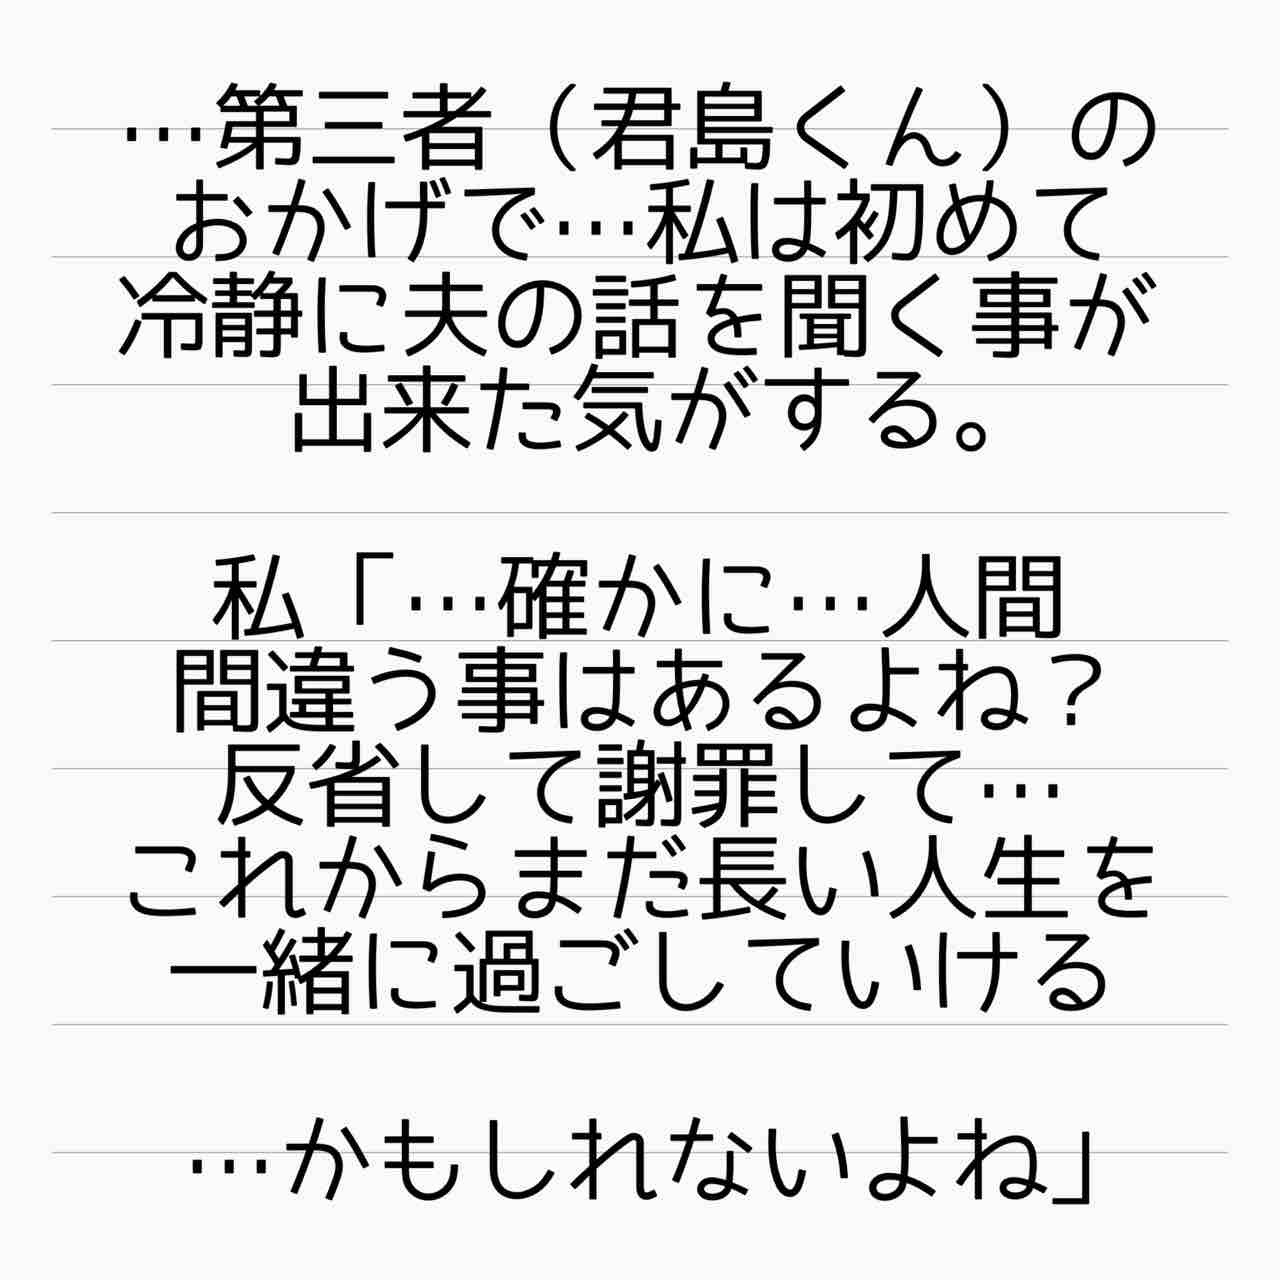 …第三者（君島くん）の
おかげで…私は初めて
冷静に夫の話を聞く事が
出来た気がする。
私「…確かに…人間
間違う事はあるよね？
反省して謝罪して…
これからまだ長い人生を
一緒に過ごしていける
…かもしれないよね」